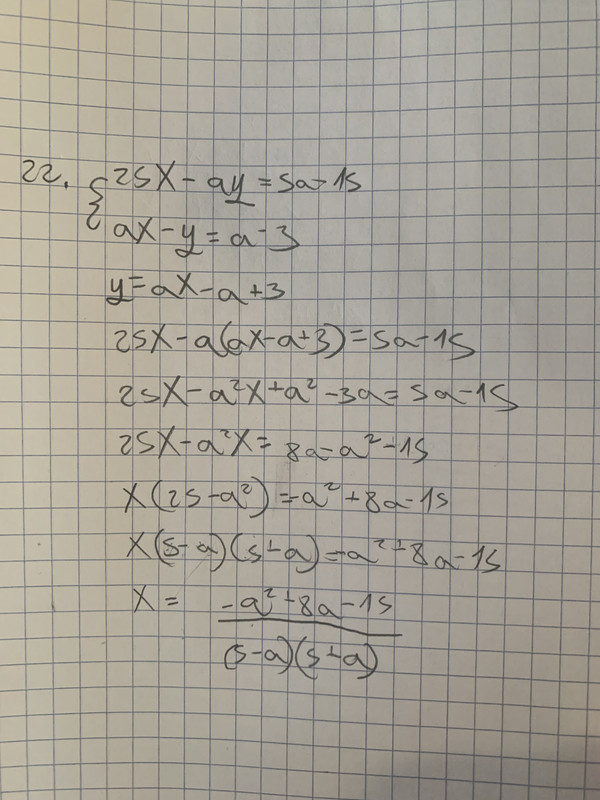 22. { 25x - ay = 5a - 15
ax - y = a - 3
y = ax - a + 3
25x - a(ax - a + 3) = 5a - 15
25x - a²x + a² - 3a = 5a - 15
25x - a²x = 8a - a² - 15
x(25 - a²) = -a² + 8a - 15
x(5 - a)(5 + a) = -a² + 8a - 15
x = -a² + 8a - 15
(5 - a)(5 + a)